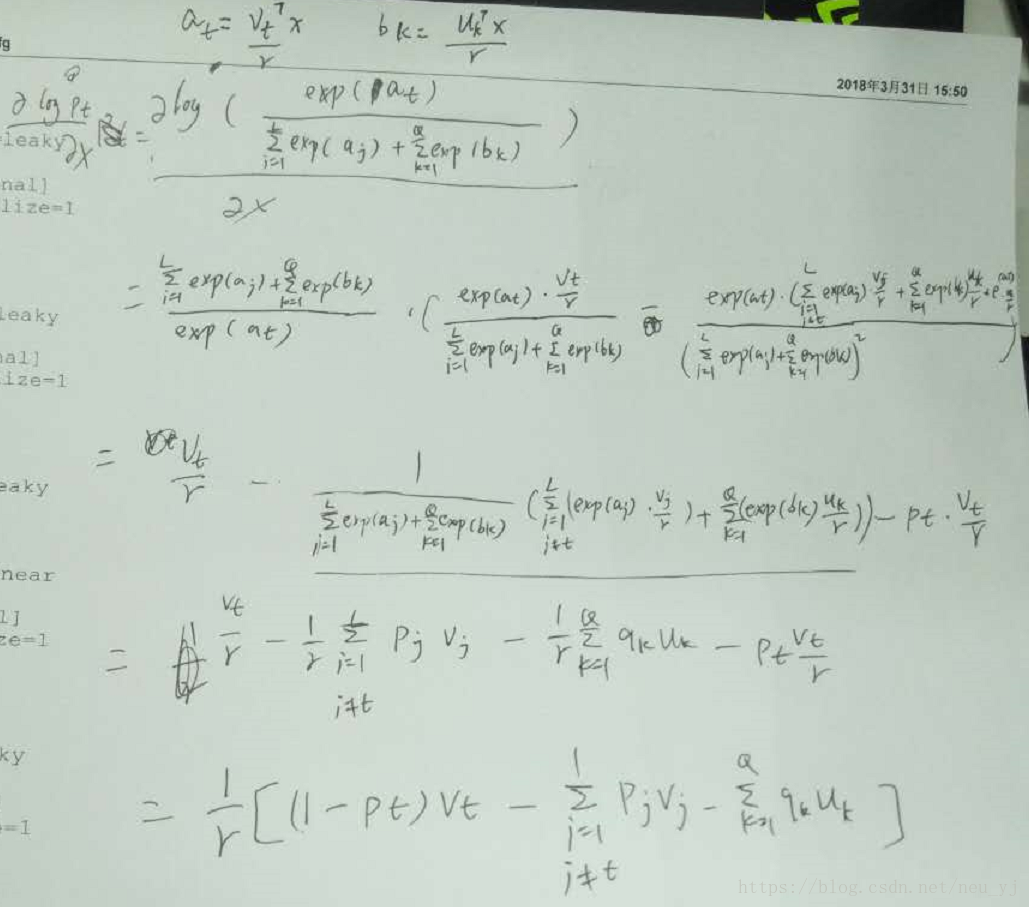 a_t = \frac{v_t^T x}{r} b_k = \frac{u_k^T x}{r}
fg
2018年3月31日 15:50
\frac{∂ log p_t}{∂x} = \frac{∂ log ( \frac{exp(a_t)}{\sum_{i=1}^{L} exp(a_j) + \sum_{k=1}^{Q} exp(b_k)} )}{∂x}
leaky
nal]
lize=1
= \frac{\sum_{i=1}^{L} exp(a_j) + \sum_{k=1}^{Q} exp(b_k)}{exp(a_t)} · ( \frac{exp(a_t) · \frac{v_t}{r}}{\sum_{i=1}^{L} exp(a_j) + \sum_{k=1}^{Q} exp(b_k)} - \frac{exp(a_t) · ( \sum_{i=1}^{L} exp(a_j) · \frac{v_j}{r} + \sum_{k=1}^{Q} exp(b_k) \frac{u_k}{r} +}{( \sum_{i=1}^{L} exp(a_j) + \sum_{k=1}^{Q} exp(b_k) )^2} )
leaky
nal]
ize=1
= \frac{v_t}{r} - \frac{1}{\sum_{j=1}^{L} exp(a_j) + \sum_{k=1}^{Q} exp(b_k)} ( \sum_{j=1, j≠t}^{L} (exp(a_j) · \frac{v_j}{r}) + \sum_{k=1}^{Q} (exp(b_k) \frac{u_k}{r}) ) - p_t · \frac{v_t}{r}
eaky
near
l]
ze=1
= \frac{v_t}{r} - \frac{1}{r} \sum_{i=1, j≠t}^{L} p_j v_j - \frac{1}{r} \sum_{k=1}^{Q} q_k u_k - p_t \frac{v_t}{r}
ky
=1
= \frac{1}{r} [ (1 - p_t) v_t - \sum_{j=1, j≠t}^{l} p_j v_j - \sum_{k=1}^{Q} q_k u_k ]
https://blog.csdn.net/neu_yj